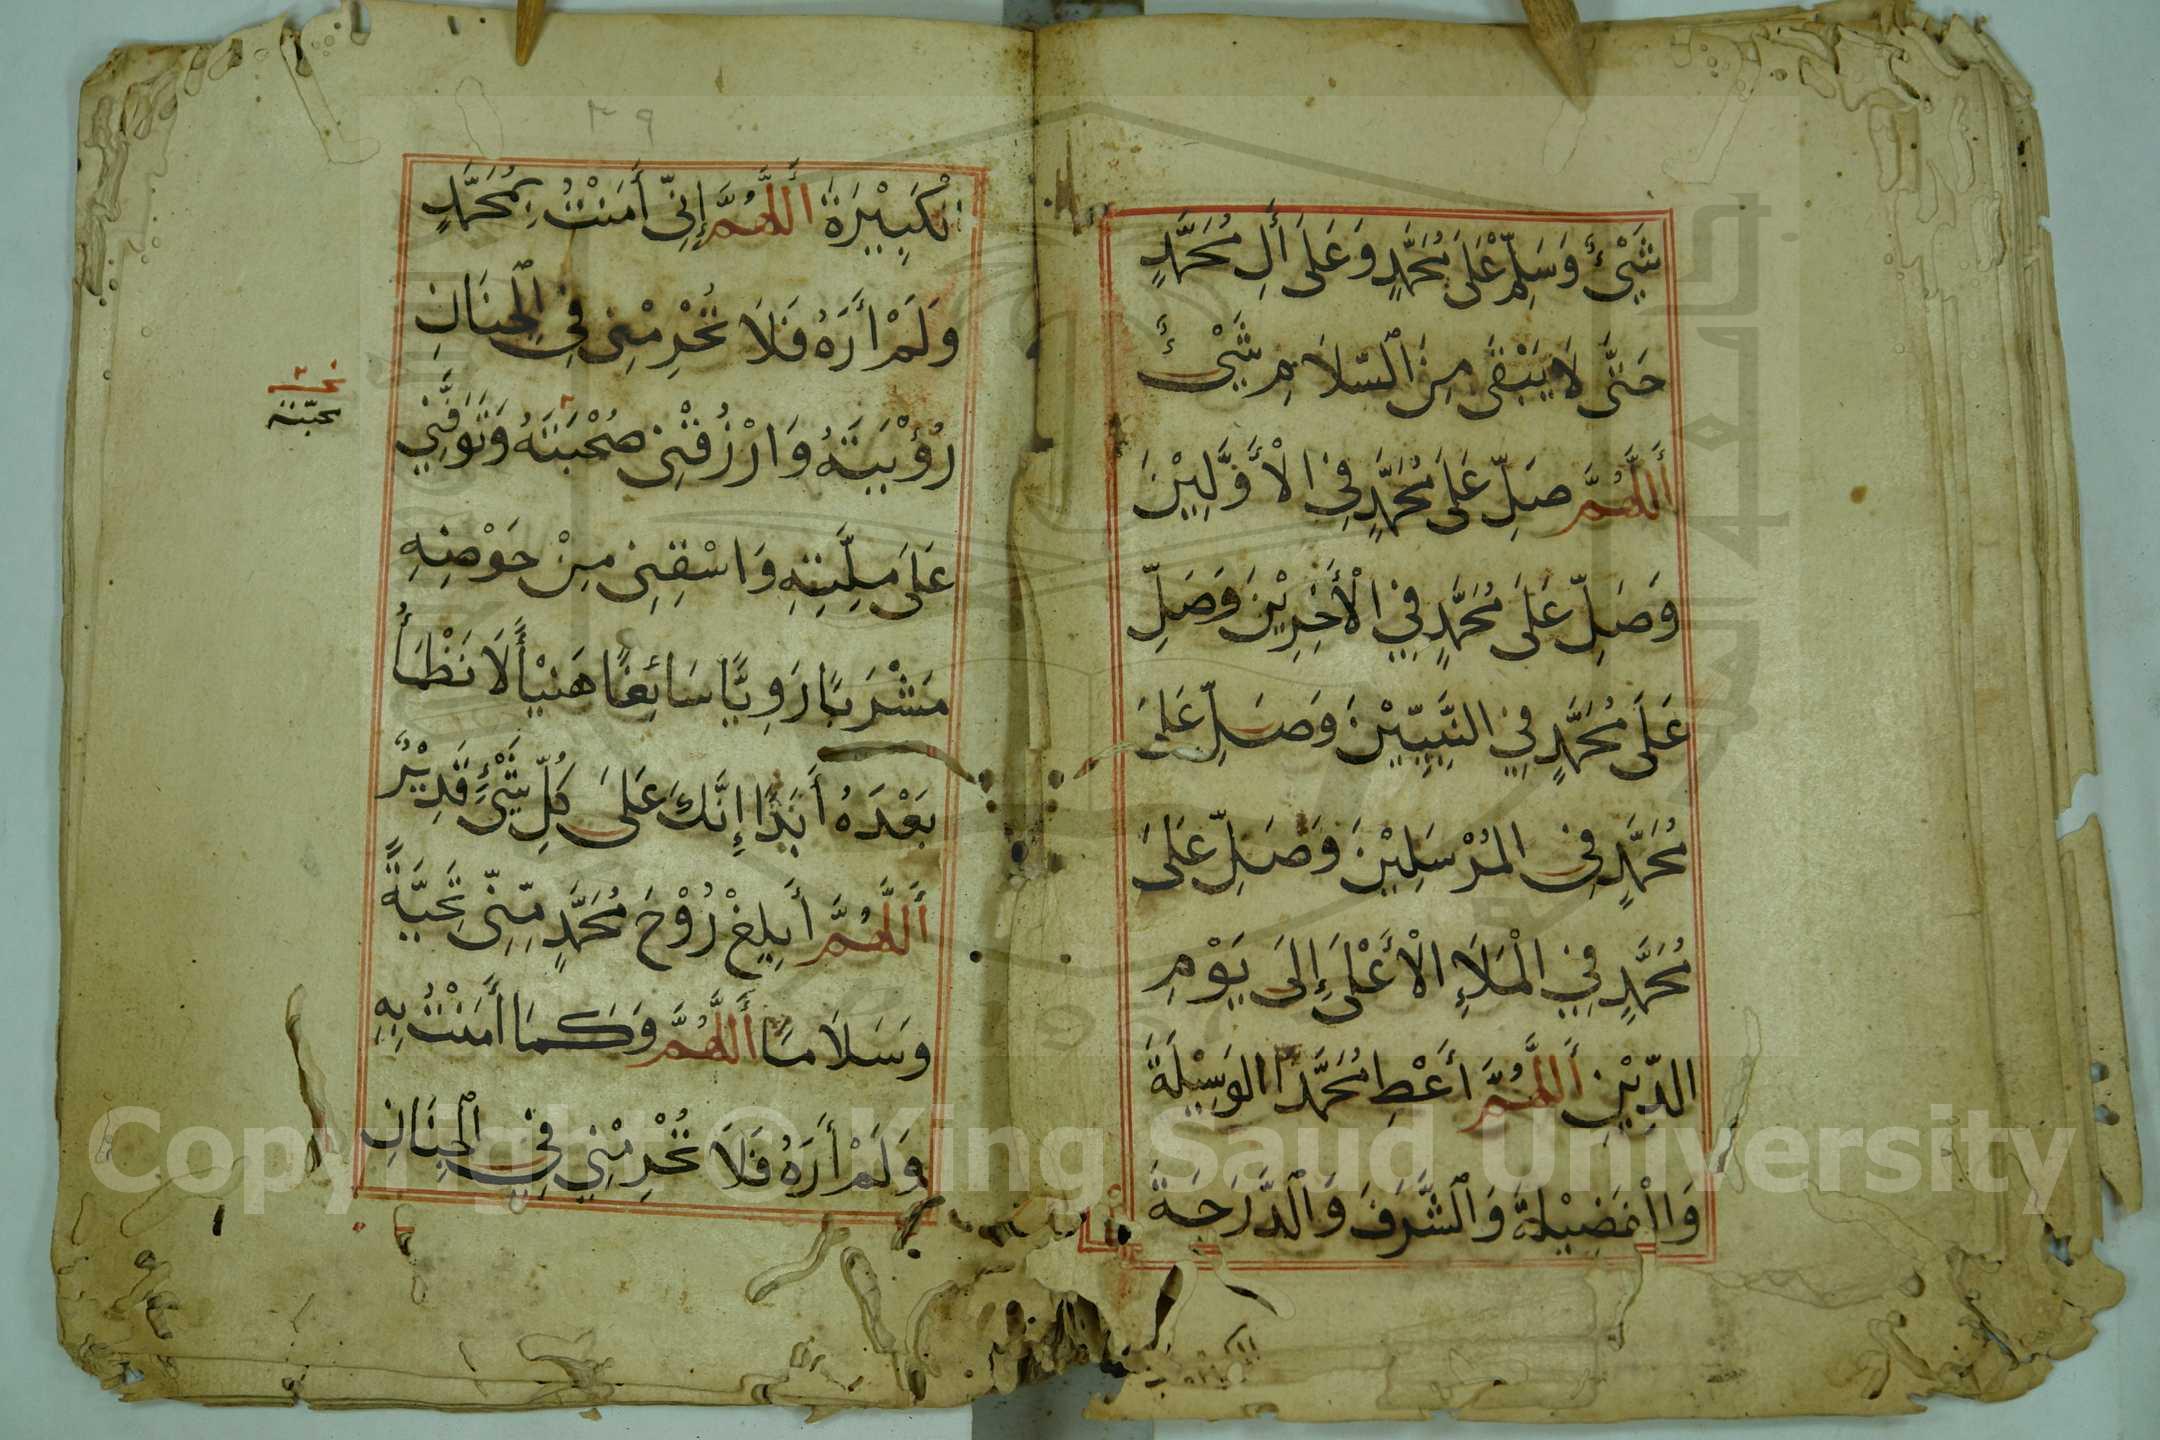 شَيْءٌ وَسَلِّمْ عَلَىٰ مُحَمَّدٍ وَعَلَىٰ أَلِ مُحَمَّدٍ
حَتَّى لَا يَبْقَى مِنَ ٱلسَّلَامِ شَيْءٌ
أَللَّهُمَّ صَلِّ عَلَى مُحَمَّدٍ فِي الْأَوَّلِيْنَ
وَصَلِّ عَلَىٰ مُحَمَّدٍ فِي الْأَخِرِيْنَ وَصَلِّ
عَلَى مُحَمَّدٍ فِي النَّبِيِّيْنَ وَصَلِّ عَلَىٰ
مُحَمَّدٍ فِي المُرْسَلِيْنَ وَصَلِّ عَلَىٰ
مُحَمَّدٍ فِي الْمَلَإِ الْأَعْلَىٰ إِلَىٰ يَوْمِ
الدِّيْنِ أَللَّهُمَّ أَعْطِ مُحَمَّدًا الوَسِيْلَةَ
وَالْفَضِيْلَةَ وَٱلشَّرَفَ وَٱلدَّرَجَةَ
الكبيرة
٣٩
الْكَبِيْرَةَ أَللَّهُمَّ إِنِّي أَمَنْتُ بِمُحَمَّدٍ
وَلَمْ أَرَهُ فَلَا تُحْرِمْنِي فِي ٱلْجِنَانِ
رُؤْيَتَهُ وَارْزُقْنِي صُحْبَتَهُ وَتَوَفَّنِي
عَلَىٰ مِلَّتِهِ وَاسْقِنِي مِنْ حَوْضِهِ
مَشْرَبًا رَوِيًّا سَائِغًا هَنِيْأً لَا نَظْمَأُ
بَعْدَهُ أَبَدًا إِنَّكَ عَلَىٰ كُلِّ شَيْءٍ قَدِيْرٌ
أَللَّهُمَّ أَبْلِغْ رُوْحَ مُحَمَّدٍ مِّنِّي تَحِيَّةً
وَسَلَامًا أَللَّهُمَّ وَكَمَا أَمَنْتُ بِهِ
وَلَمْ أَرَهُ فَلَا تُحْرِمْنِي فِي ٱلْجِنَانِ
محبته
Copyright © King Saud University